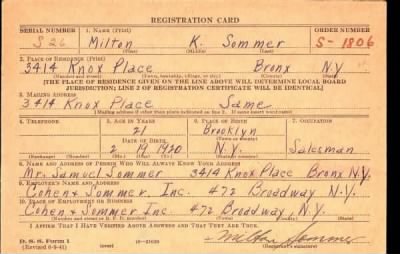 REGISTRATION CARD
SERIAL NUMBER 1. NAME (Print) ORDER NUMBER
S 26 Milton K. Sommer S-1806
(First) (Middle) (Last)
2. PLACE OF RESIDENCE (Print)
3414 Knox Place Bronx N.Y.
(Number and street) (Town, township, village, or city) (County) (State)
[THE PLACE OF RESIDENCE GIVEN ON THE LINE ABOVE WILL DETERMINE LOCAL BOARD
JURISDICTION; LINE 2 OF REGISTRATION CERTIFICATE WILL BE IDENTICAL]
3. MAILING ADDRESS
3414 Knox Place Same
[Mailing address if other than place indicated on line 2. If same insert word same]
4. TELEPHONE 5. AGE IN YEARS 6. PLACE OF BIRTH 7. OCCUPATION
21 Brooklyn
DATE OF BIRTH
2 1920 N.Y. Salesman
(Exchange) (Number) (Mo.) (Day) (Yr.) (State or country)
8. NAME AND ADDRESS OF PERSON WHO WILL ALWAYS KNOW YOUR ADDRESS
Mr. Samuel Sommer 3414 Knox Place Bronx N.Y.
9. EMPLOYER'S NAME AND ADDRESS
Cohen & Sommer, Inc. 472 Broadway N.Y.
10. PLACE OF EMPLOYMENT OR BUSINESS
Cohen & Sommer Inc. 472 Broadway, N.Y.
I AFFIRM THAT I HAVE VERIFIED ABOVE ANSWERS AND THAT THEY ARE TRUE.
D. S. S. Form 1
(Revised 6-9-41) (over) Milton Sommer